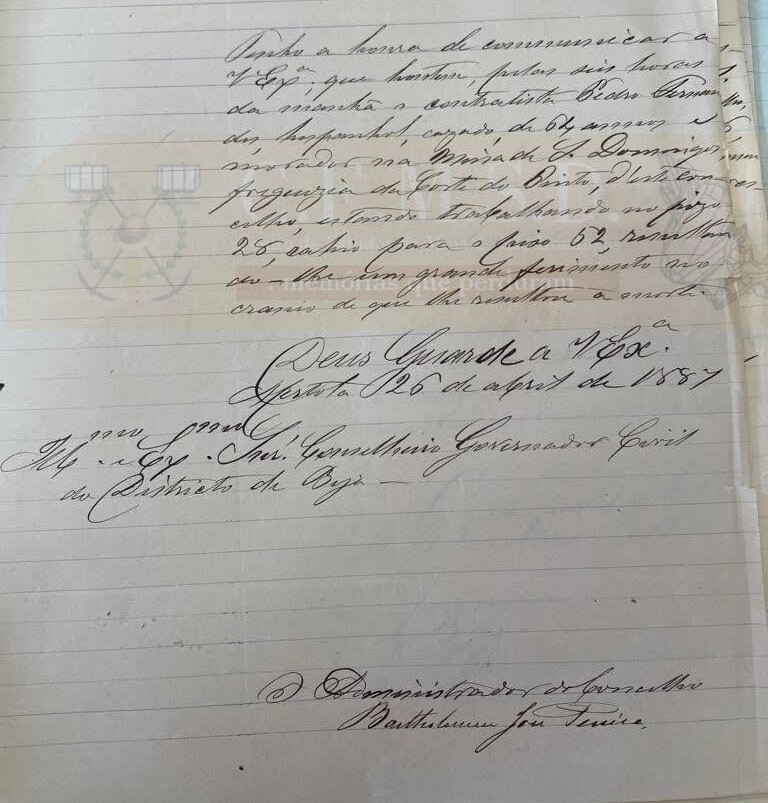 Tenho a honra de communicar a
V Ex.ª, que hontem, pelas seis horas
da manhã o contratista Pedro Fernan
des hespanhol, cazado, de 64 annos e
morador na Mina de S. Domingos,
freguezia da Corte do Pinto, d'este con-
celho, estando trabalhando no pizo
28, cahio para o piso 52, resultan
do-lhe um grande ferimento no
craneo de que lhe resultou a morte.
memórias que perduram
Deus Guarde a V Ex.ª
Mertola 26 de abril de 1887
Ill.mo e Ex.mo Snr. Conselheiro Governador Civil
do Districto de Beja —
O Administrador do Concelho
Bartholomeu José